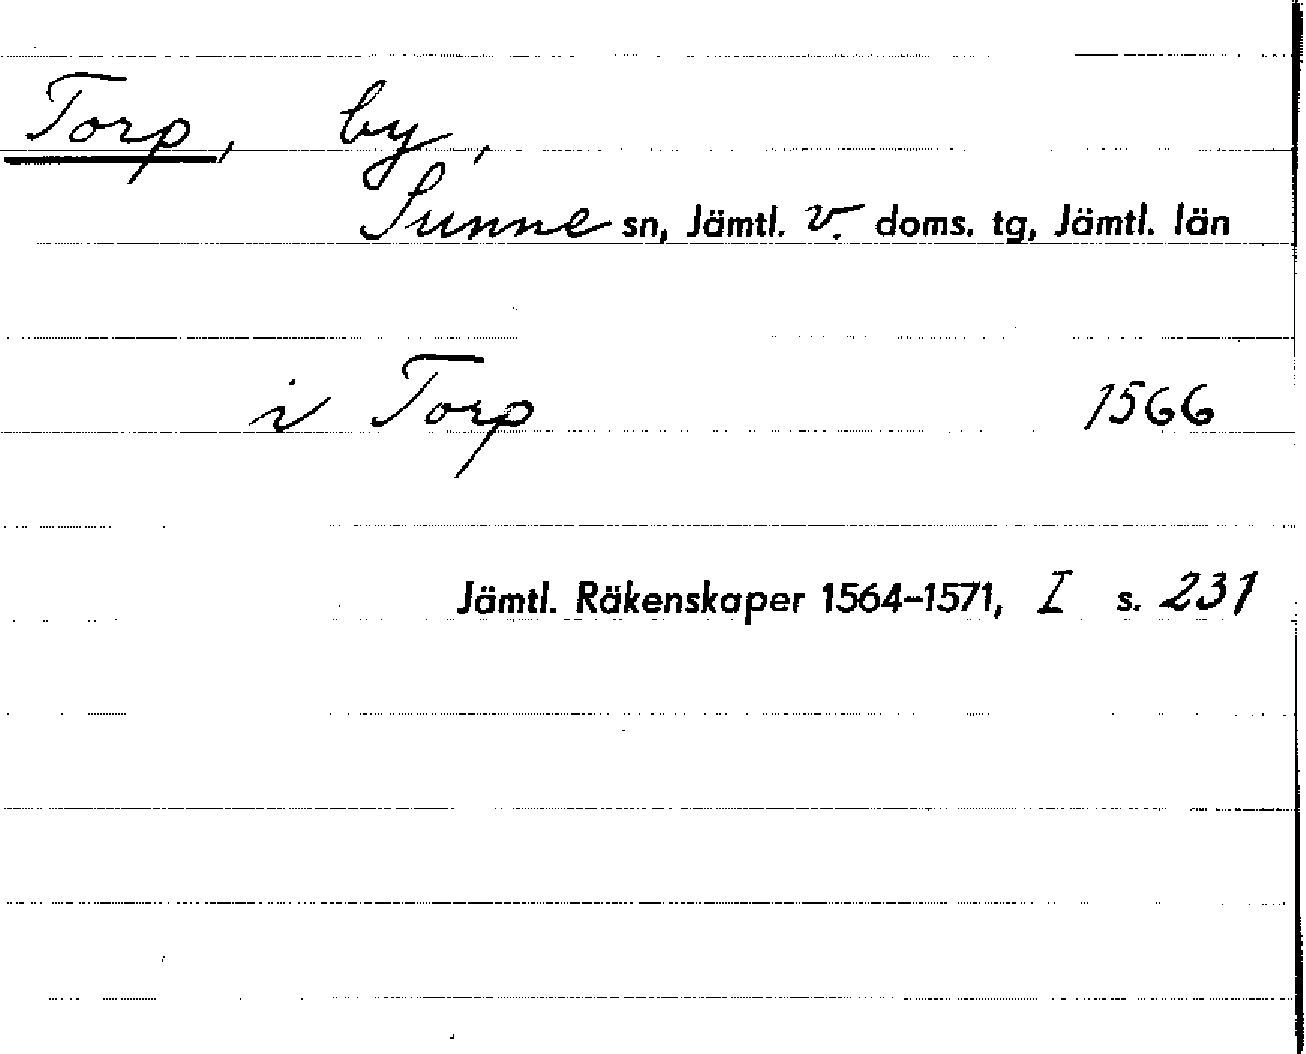 Torp, by,
Sunne sn, Jämtl. v. doms. tg, Jämtl. län
i Torp 1566
Jämtl. Räkenskaper 1564-1571, I s. 231